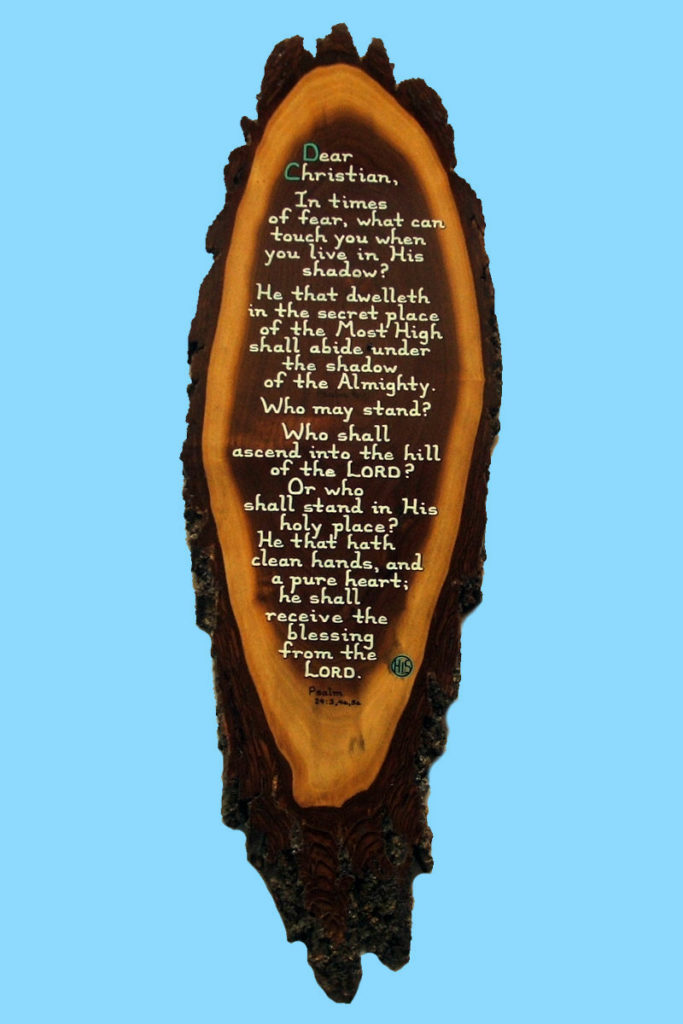 Dear
Christian,
In times
of fear, what can
touch you when
you live in His
shadow?
He that dwelleth
in the secret place
of the Most High
shall abide under
the shadow
of the Almighty.
Who may stand?
Who shall
ascend into the hill
of the LORD?
Or who
shall stand in His
holy place?
He that hath
clean hands, and
a pure heart;
he shall
receive the
blessing
from the
LORD.
HIS
Psalm
24:3,4a,5a